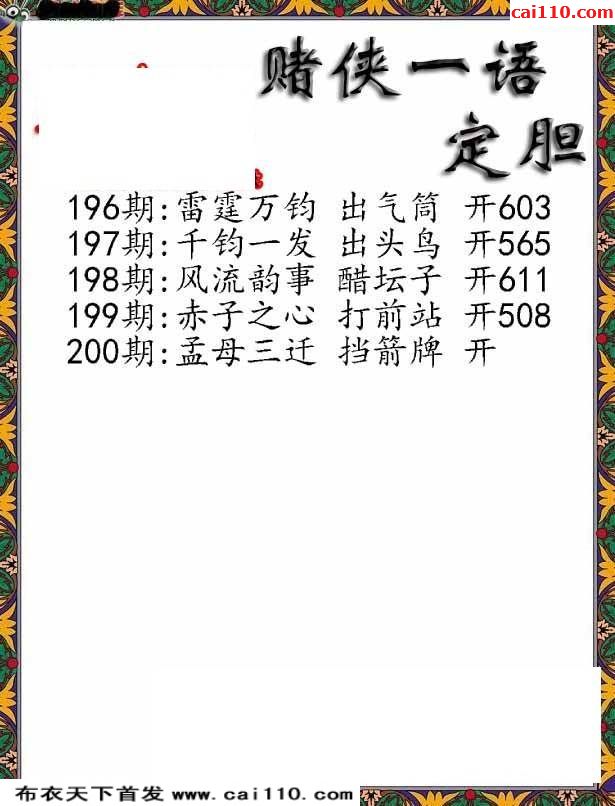 cai110.com
赌侠一语
定胆
196期:雷霆万钧 出气筒 开603
197期:千钧一发 出头鸟 开565
198期:风流韵事 醋坛子 开611
199期:赤子之心 打前站 开508
200期:孟母三迁 挡箭牌 开
布衣天下首发 www.cai110.com